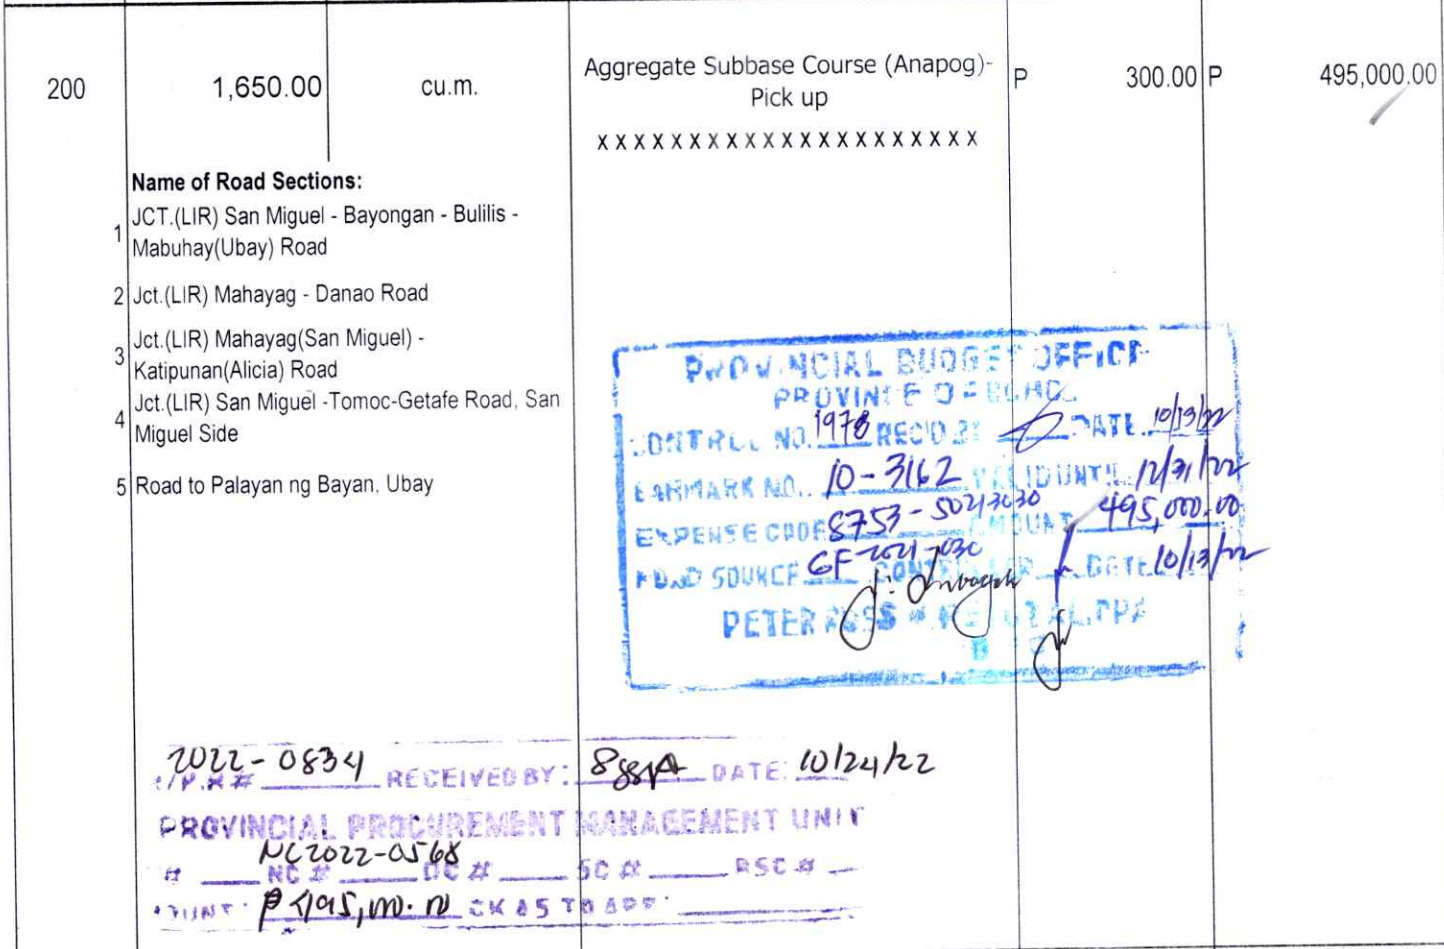 200 1,650.00 cu.m. Aggregate Subbase Course (Anapog)- P 300.00 P 495,000.00
Pick up
x x x x x x x x x x x x x x x x x x x x x
Name of Road Sections:
1 JCT.(LIR) San Miguel - Bayongan - Bulilis -
Mabuhay(Ubay) Road
2 Jct.(LIR) Mahayag - Danao Road
3 Jct.(LIR) Mahayag(San Miguel) -
Katipunan(Alicia) Road
4 Jct.(LIR) San Miguel -Tomoc-Getafe Road, San
Miguel Side
5 Road to Palayan ng Bayan, Ubay
PROVINCIAL BUDGET OFFICE
PROVINCE OF BOHOL
CONTROL NO. 1978 REC'D BY DATE 10/13/22
EARMARK NO. 10-3162 VALID UNTIL 12/31/22
EXPENSE CODE 8753-50213030 AMOUNT 495,000.00
FUND SOURCE GF-2021-030 DATE 10/13/22
PETER
2022-0834 RECEIVED BY: DATE: 10/24/22
PROVINCIAL PROCUREMENT MANAGEMENT UNIT
# NC # NC2022-0568 DC # SC # RSC #
P 495,000.00 CK AS TO APP: